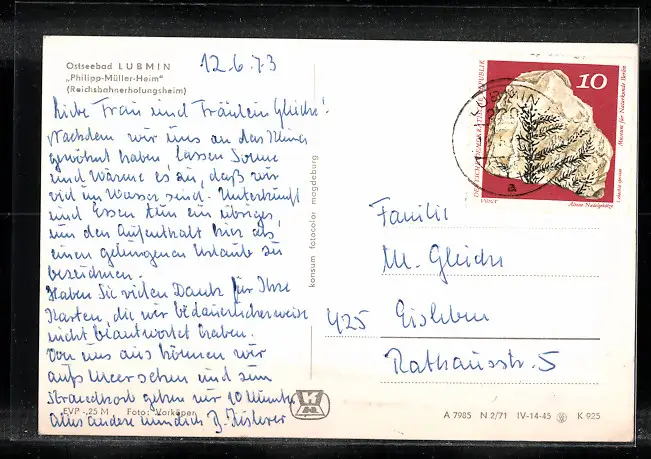 Ostseebad LUBMIN
„Philipp-Müller-Heim"
(Reichsbahnerholungsheim)
12.6.73
Liebe Frau und Fräulein Gleiche!
Nachdem wir uns an das Klima
gewöhnt haben lassen Sonne
und Wärme es zu, daß wir
viel im Wasser sind. Unterkunft
und Essen tun ein übriges,
um den Aufenthalt hier als
einen gelungenen Urlaub zu
bezeichnen.
Haben Sie vielen Dank für Ihre
Karten, die wir bedauerlicherweise
nicht beantwortet haben.
Von uns aus können wir
aufs Meer sehen und zum
Strandkorb gehen wir 10 Minuten
Alles andere mündlich
EVP -,25 M Foto: Vorköper
konsum fotocolor magdeburg
DEUTSCHE DEMOKRATISCHE REPUBLIK
10
Museum für Naturkunde Berlin
Lebachia speciosa
Älteste Nadelgehölze
LUBMIN
a
Familie
M. Gleiche
425 Eisleben
Rathausstr. 5
A 7985 N 2/71 IV-14-45 K 925